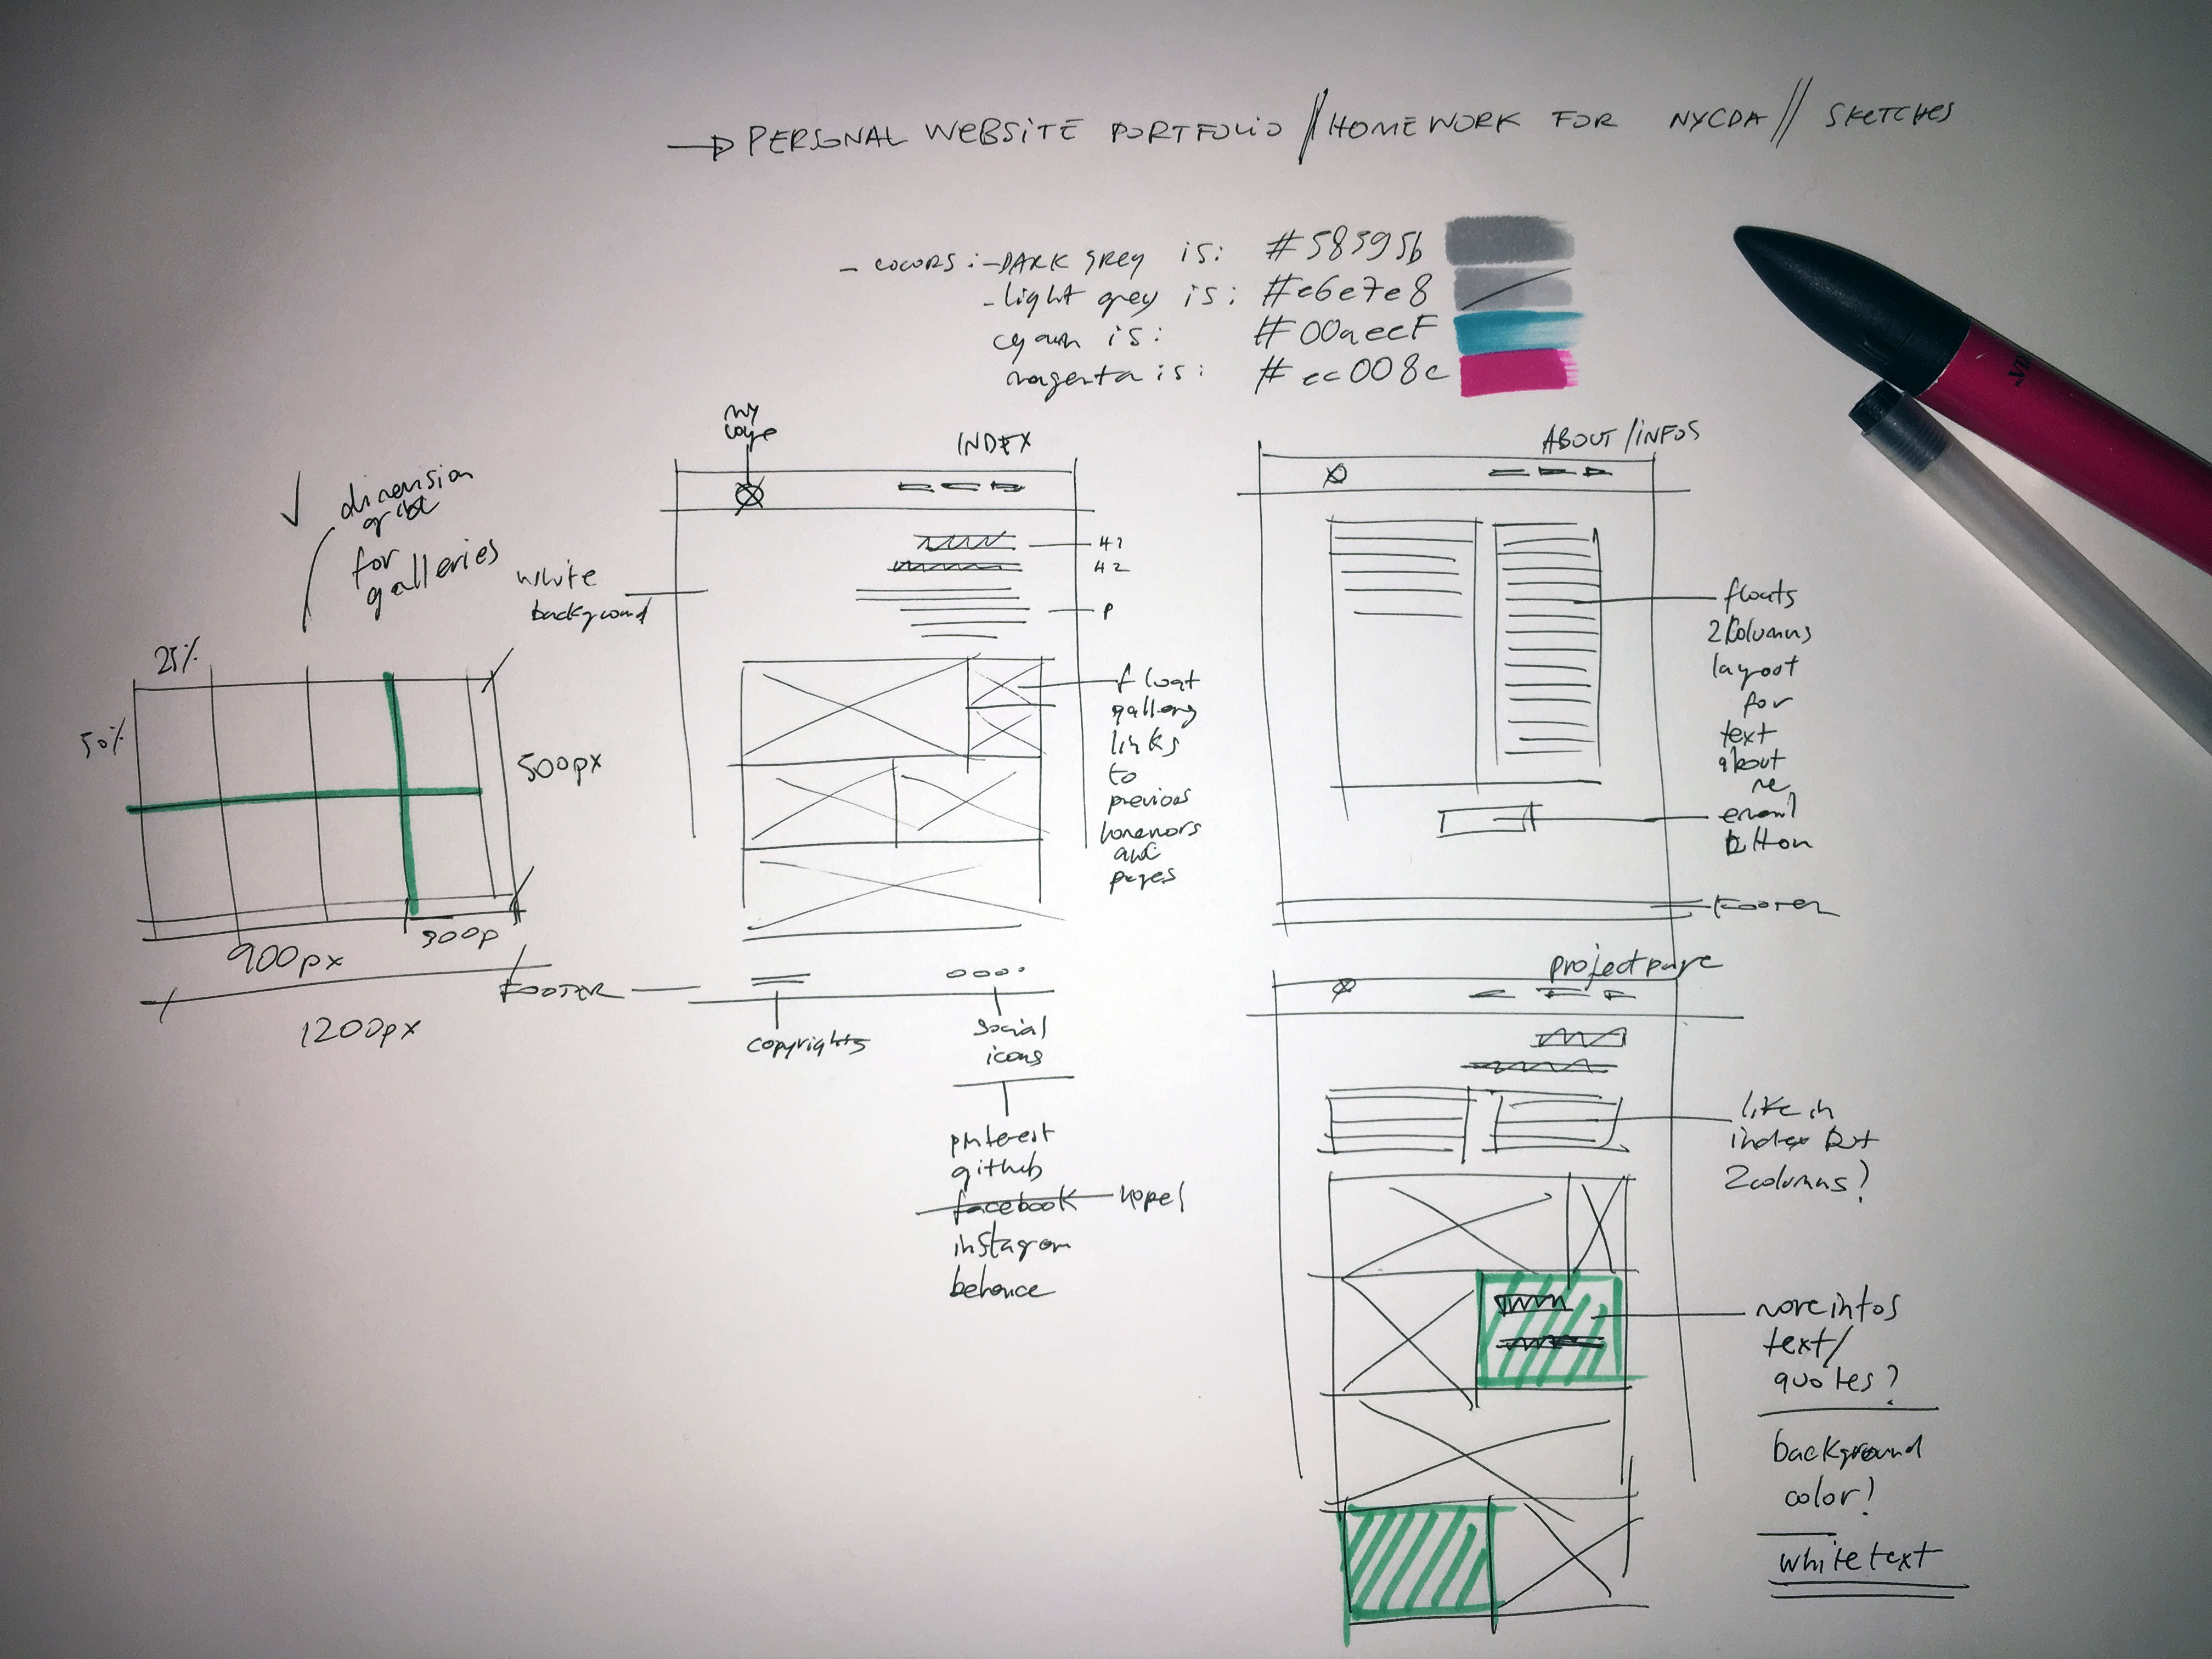 PERSONAL WEBSITE PORTFOLIO // HOMEWORK FOR NYCDA // SKETCHES
- COLORS: - DARK GREY is: #58595b
- light grey is: #e6e7e8
cyan is: #00aecF
magenta is: #ec008c
my
INDEX
ABOUT / INFOS
dimension
for
galleries
25%
50%
500px
900px
300p
1200px
white
background
H1
H2
P
float
gallery
links
to
previous
and
pages
FOOTER
copyrights
social
icons
pinterest
github
facebook
instagram
behance
floats
2 columns
layout
for
text
about
me
email
button
FOOTER
project page
like in
index but
2 columns?
more infos
text/
quotes?
background
color!
white text